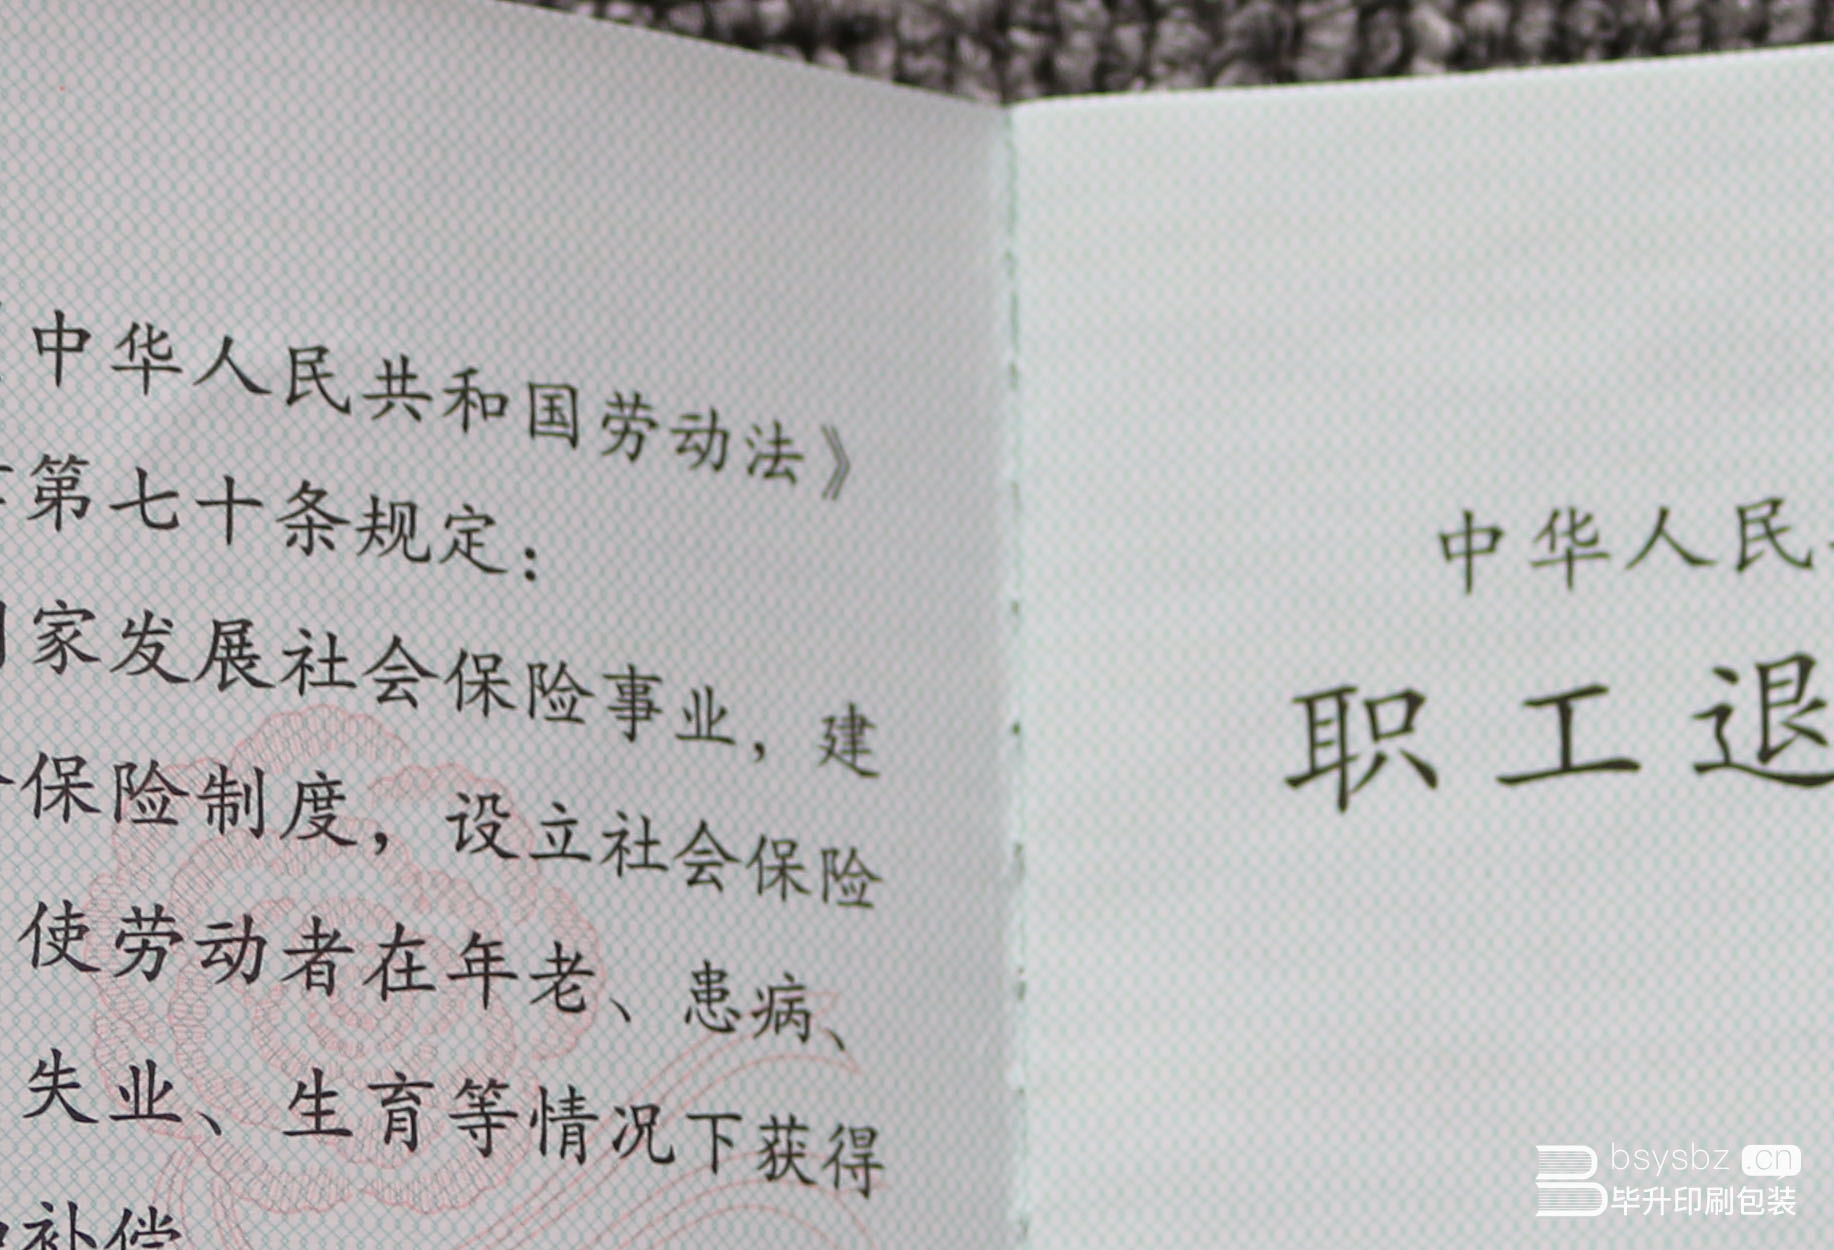 中华人民共和国劳动法》
第七十条规定：
家发展社会保险事业，建
保险制度，设立社会保险
使劳动者在年老、患病、
失业、生育等情况下获得
补偿
中华人民
职工退
bsysbz.cn
毕升印刷包装